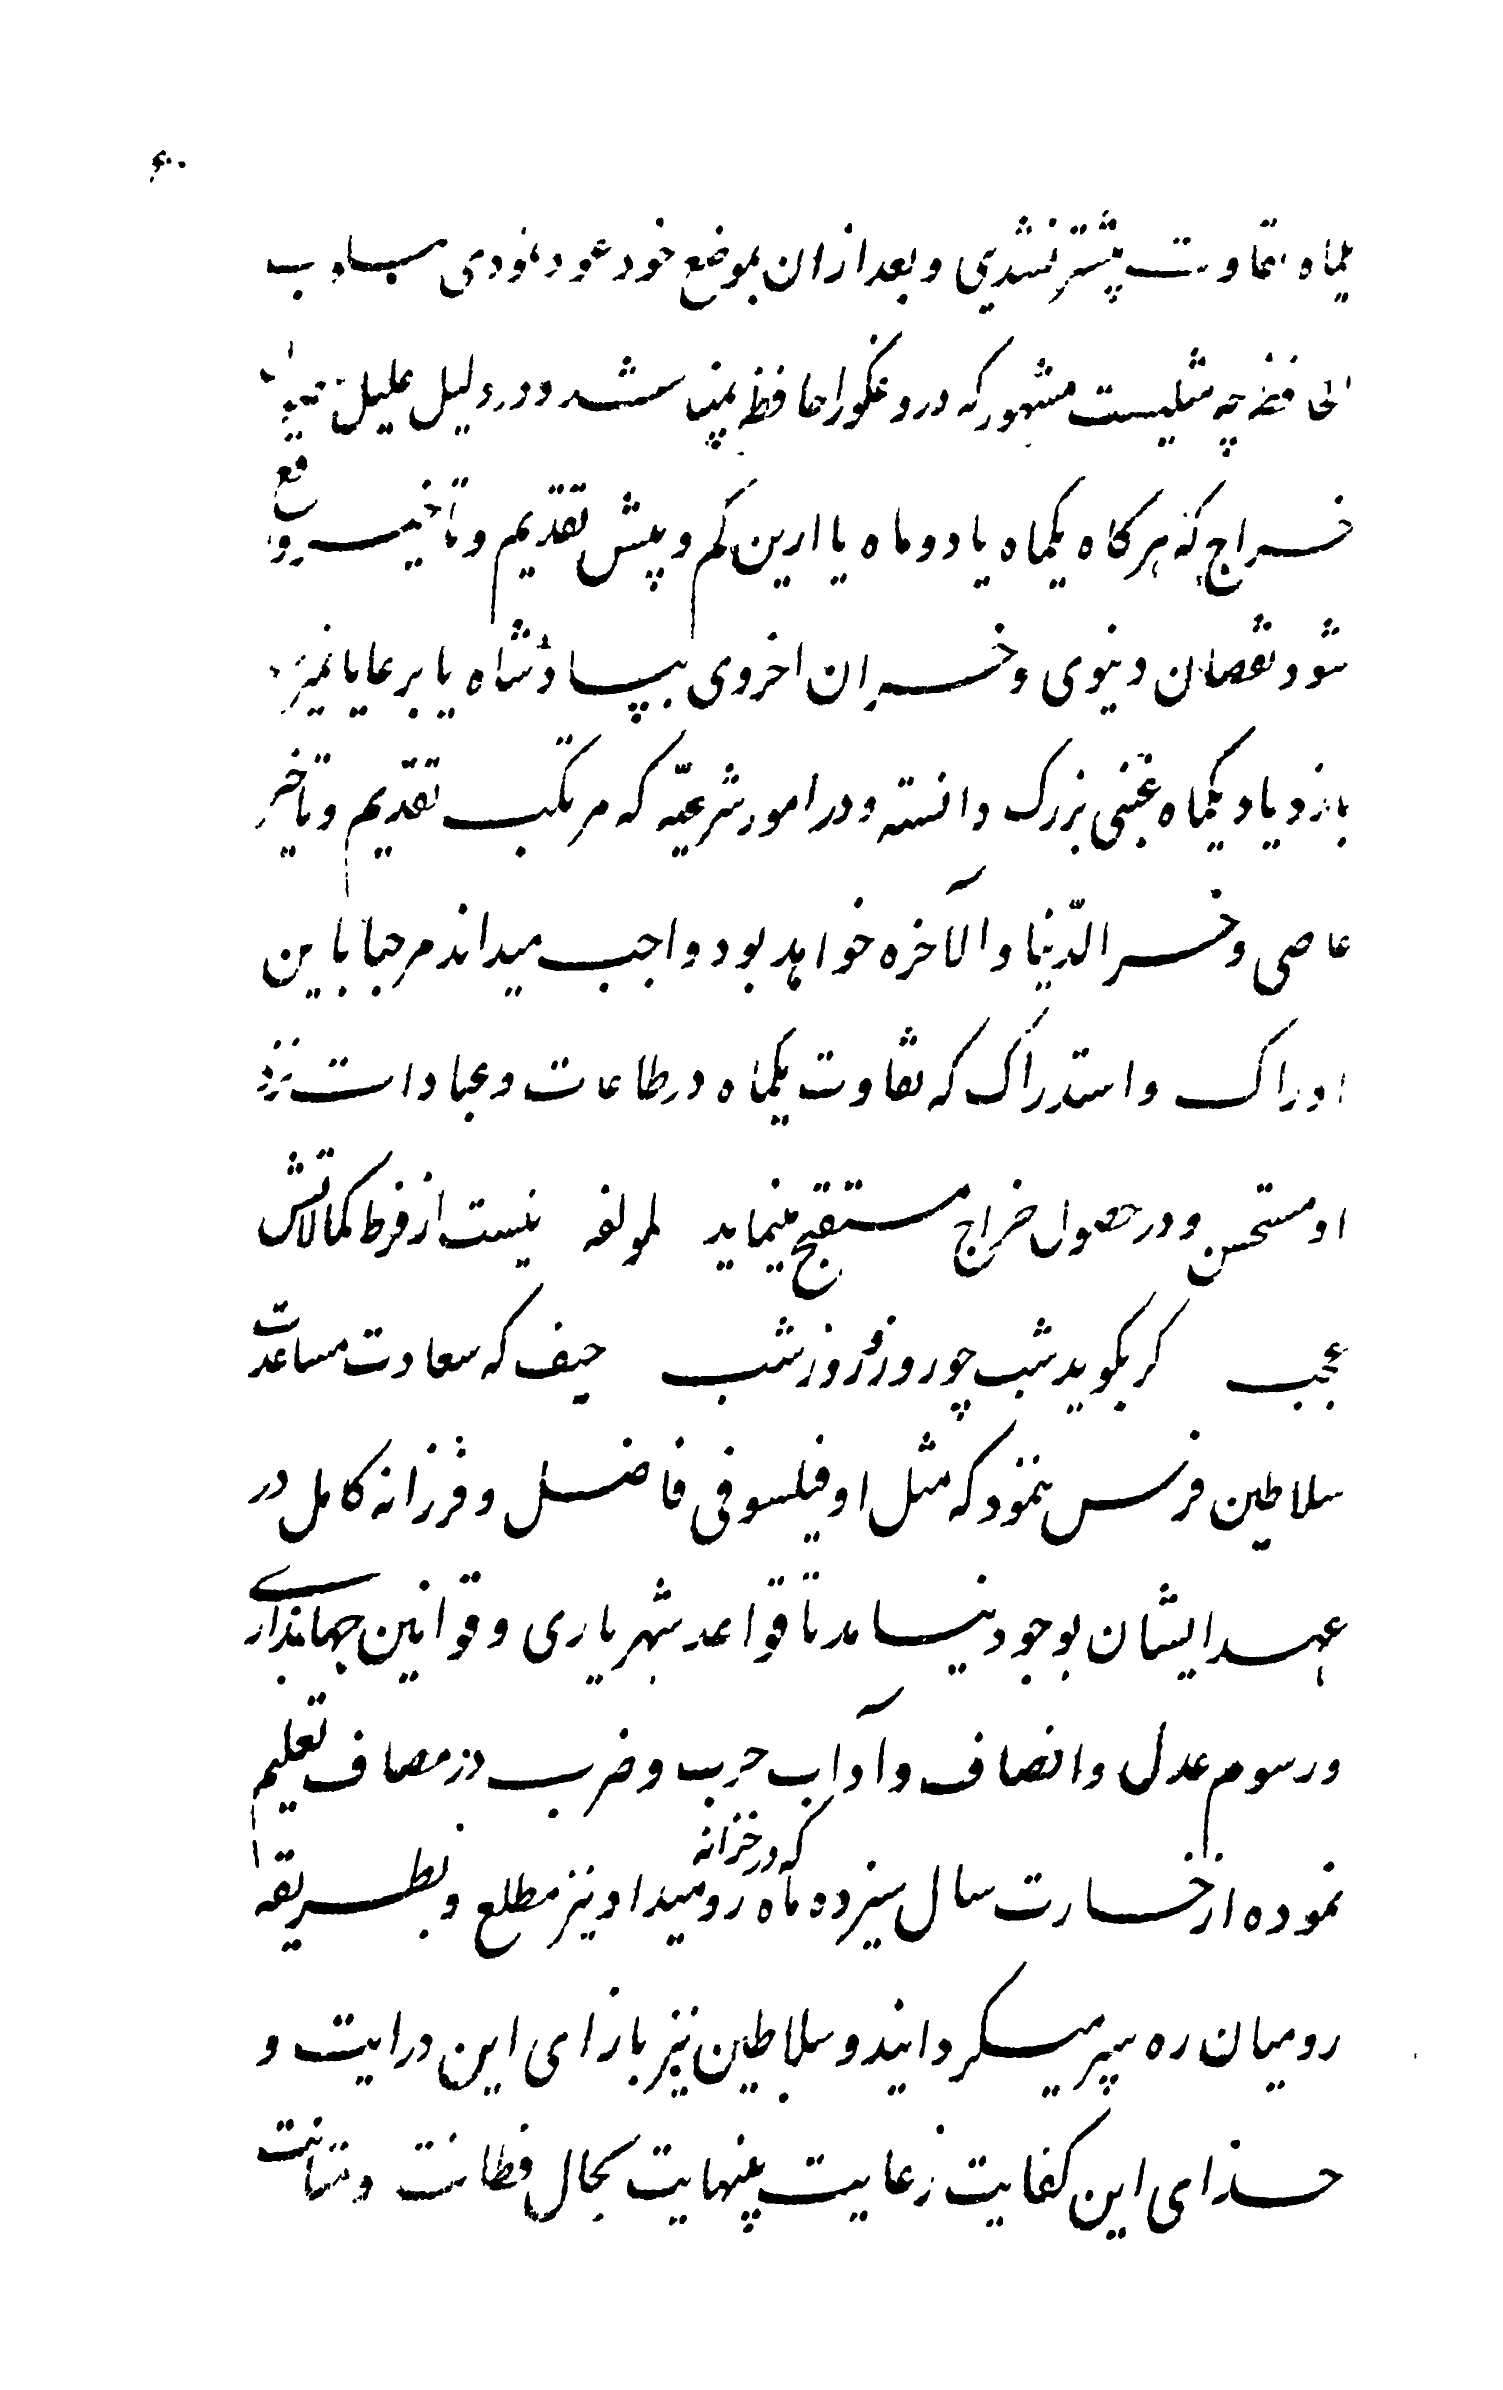 ۶۰
یکماه تفاوت پیشتر نشدی و بعد از ان بموضع خود عود نمودی
الحافظه چه مثلیست مشهور که دروغکو را حافظه نمیباشد و در دلیل علیل
خراج که هرکاه یکماه یا دو ماه یا ازین کم و بیش تقدیم و تاخیر واقع
شود نقصان دینوی و خسران اخروی بپادشاه یا برعایا نمیرسد
بازدیاد یکماه غبنی بزرک دانسته و در امور شرعیّه که مرتکب تقدیم و تاخیر
عاصی و خسر الدّنیا والآخره خواهد بود واجب میداند مرحبا باین
ادراک و استدراک که تفاوت یکماه در طاعات و عبادات نزد
او مستحسن و در حصول خراج مستقبح مینماید لمولفه نیست از فرط کمالاتش
عجب کر بکوید شب چو روز و روز شب حیف که سعادت مساعدت
سلاطین فرس ننمود که مثل او فیلسوفی فاضل و فرزانه کامل در
عهد ایشان بوجود نیامد تا قواعد شهریاری و قوانین جهانداری
و رسوم عدل و انصاف و آداب حرب و ضرب در مصاف تعلیم
نموده از خسارت سال سیزده ماه که در خزانه رو میداد نیز مطلع و بطریقه
رومیان ره سپر میکردانید و سلاطین نیز بازای این درایت و
حذای این کفایت رعایت بینهایت بحال فطانت و متانت